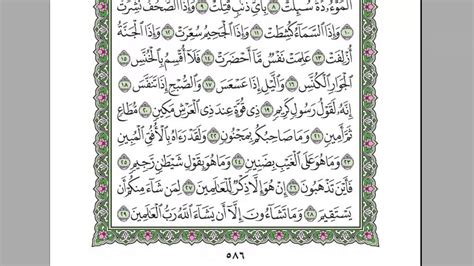 الْمَوْءُۥدَةُ سُئِلَتْ ٨ بِأَيِّ ذَنۢبٍ قُتِلَتْ ٩ وَإِذَا الصُّحُفُ نُشِرَتْ
١٠ وَإِذَا السَّمَآءُ كُشِطَتْ ١١ وَإِذَا الْجَحِيمُ سُعِّرَتْ ١٢ وَإِذَا الْجَنَّةُ
أُزْلِفَتْ ١٣ عَلِمَتْ نَفْسٌ مَّآ أَحْضَرَتْ ١٤ فَلَآ أُقْسِمُ بِالْخُنَّسِ ١٥
الْجَوَارِ الْكُنَّسِ ١٦ وَالَّيْلِ إِذَا عَسْعَسَ ١٧ وَالصُّبْحِ إِذَا تَنَفَّسَ ١٨
إِنَّهُۥ لَقَوْلُ رَسُولٍ كَرِيمٍ ١٩ ذِى قُوَّةٍ عِندَ ذِى الْعَرْشِ مَكِينٍ ٢٠ مُّطَاعٍ
ثَمَّ أَمِينٍ ٢١ وَمَا صَاحِبُكُم بِمَجْنُونٍ ٢٢ وَلَقَدْ رَءَاهُ بِالْأُفُقِ الْمُبِينِ
٢٣ وَمَا هُوَ عَلَى الْغَيْبِ بِضَنِينٍ ٢٤ وَمَا هُوَ بِقَوْلِ شَيْطَٰنٍ رَّجِيمٍ ٢٥
فَأَيْنَ تَذْهَبُونَ ٢٦ إِنْ هُوَ إِلَّا ذِكْرٌ لِّلْعَٰلَمِينَ ٢٧ لِمَن شَآءَ مِنكُمْ أَن
يَسْتَقِيمَ ٢٨ وَمَا تَشَآءُونَ إِلَّآ أَن يَشَآءَ اللَّهُ رَبُّ الْعَٰلَمِينَ ٢٩
٥٨٦